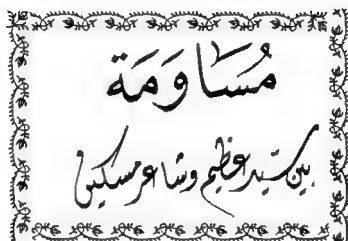 مُسَاوَمَة
بين سيّد عظيم وشاعر مسكين